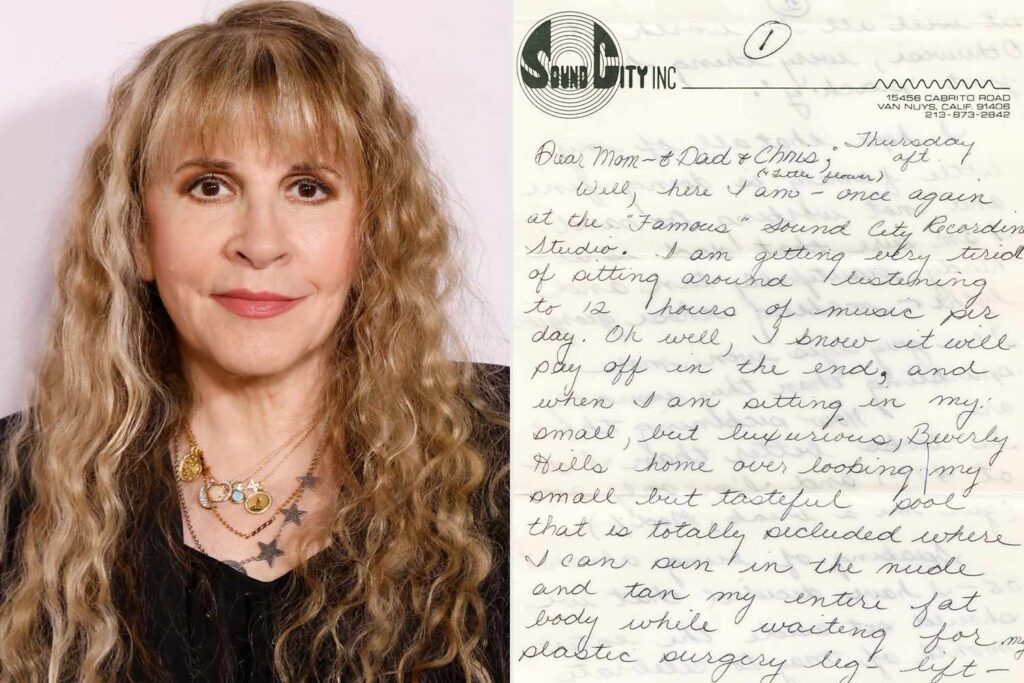 1
SOUND CITY INC
15456 CABRITO ROAD
VAN NUYS, CALIF. 91406
213-873-2842
Thursday
aft.
Dear Mom - & Dad & Chris;
("Little flower")
Well, here I am - once again
at the "Famous" Sound City Recordin
Studio. I am getting very tired
of sitting around listening
to 12 hours of music per
day. Oh well, I know it will
pay off in the end, and
when I am sitting in my
small, but luxurious, Beverly
Hills home over looking my
small but tasteful pool
that is totally secluded where
I can sun in the nude
and tan my entire fat
body while waiting for my
plastic surgery leg-lift-